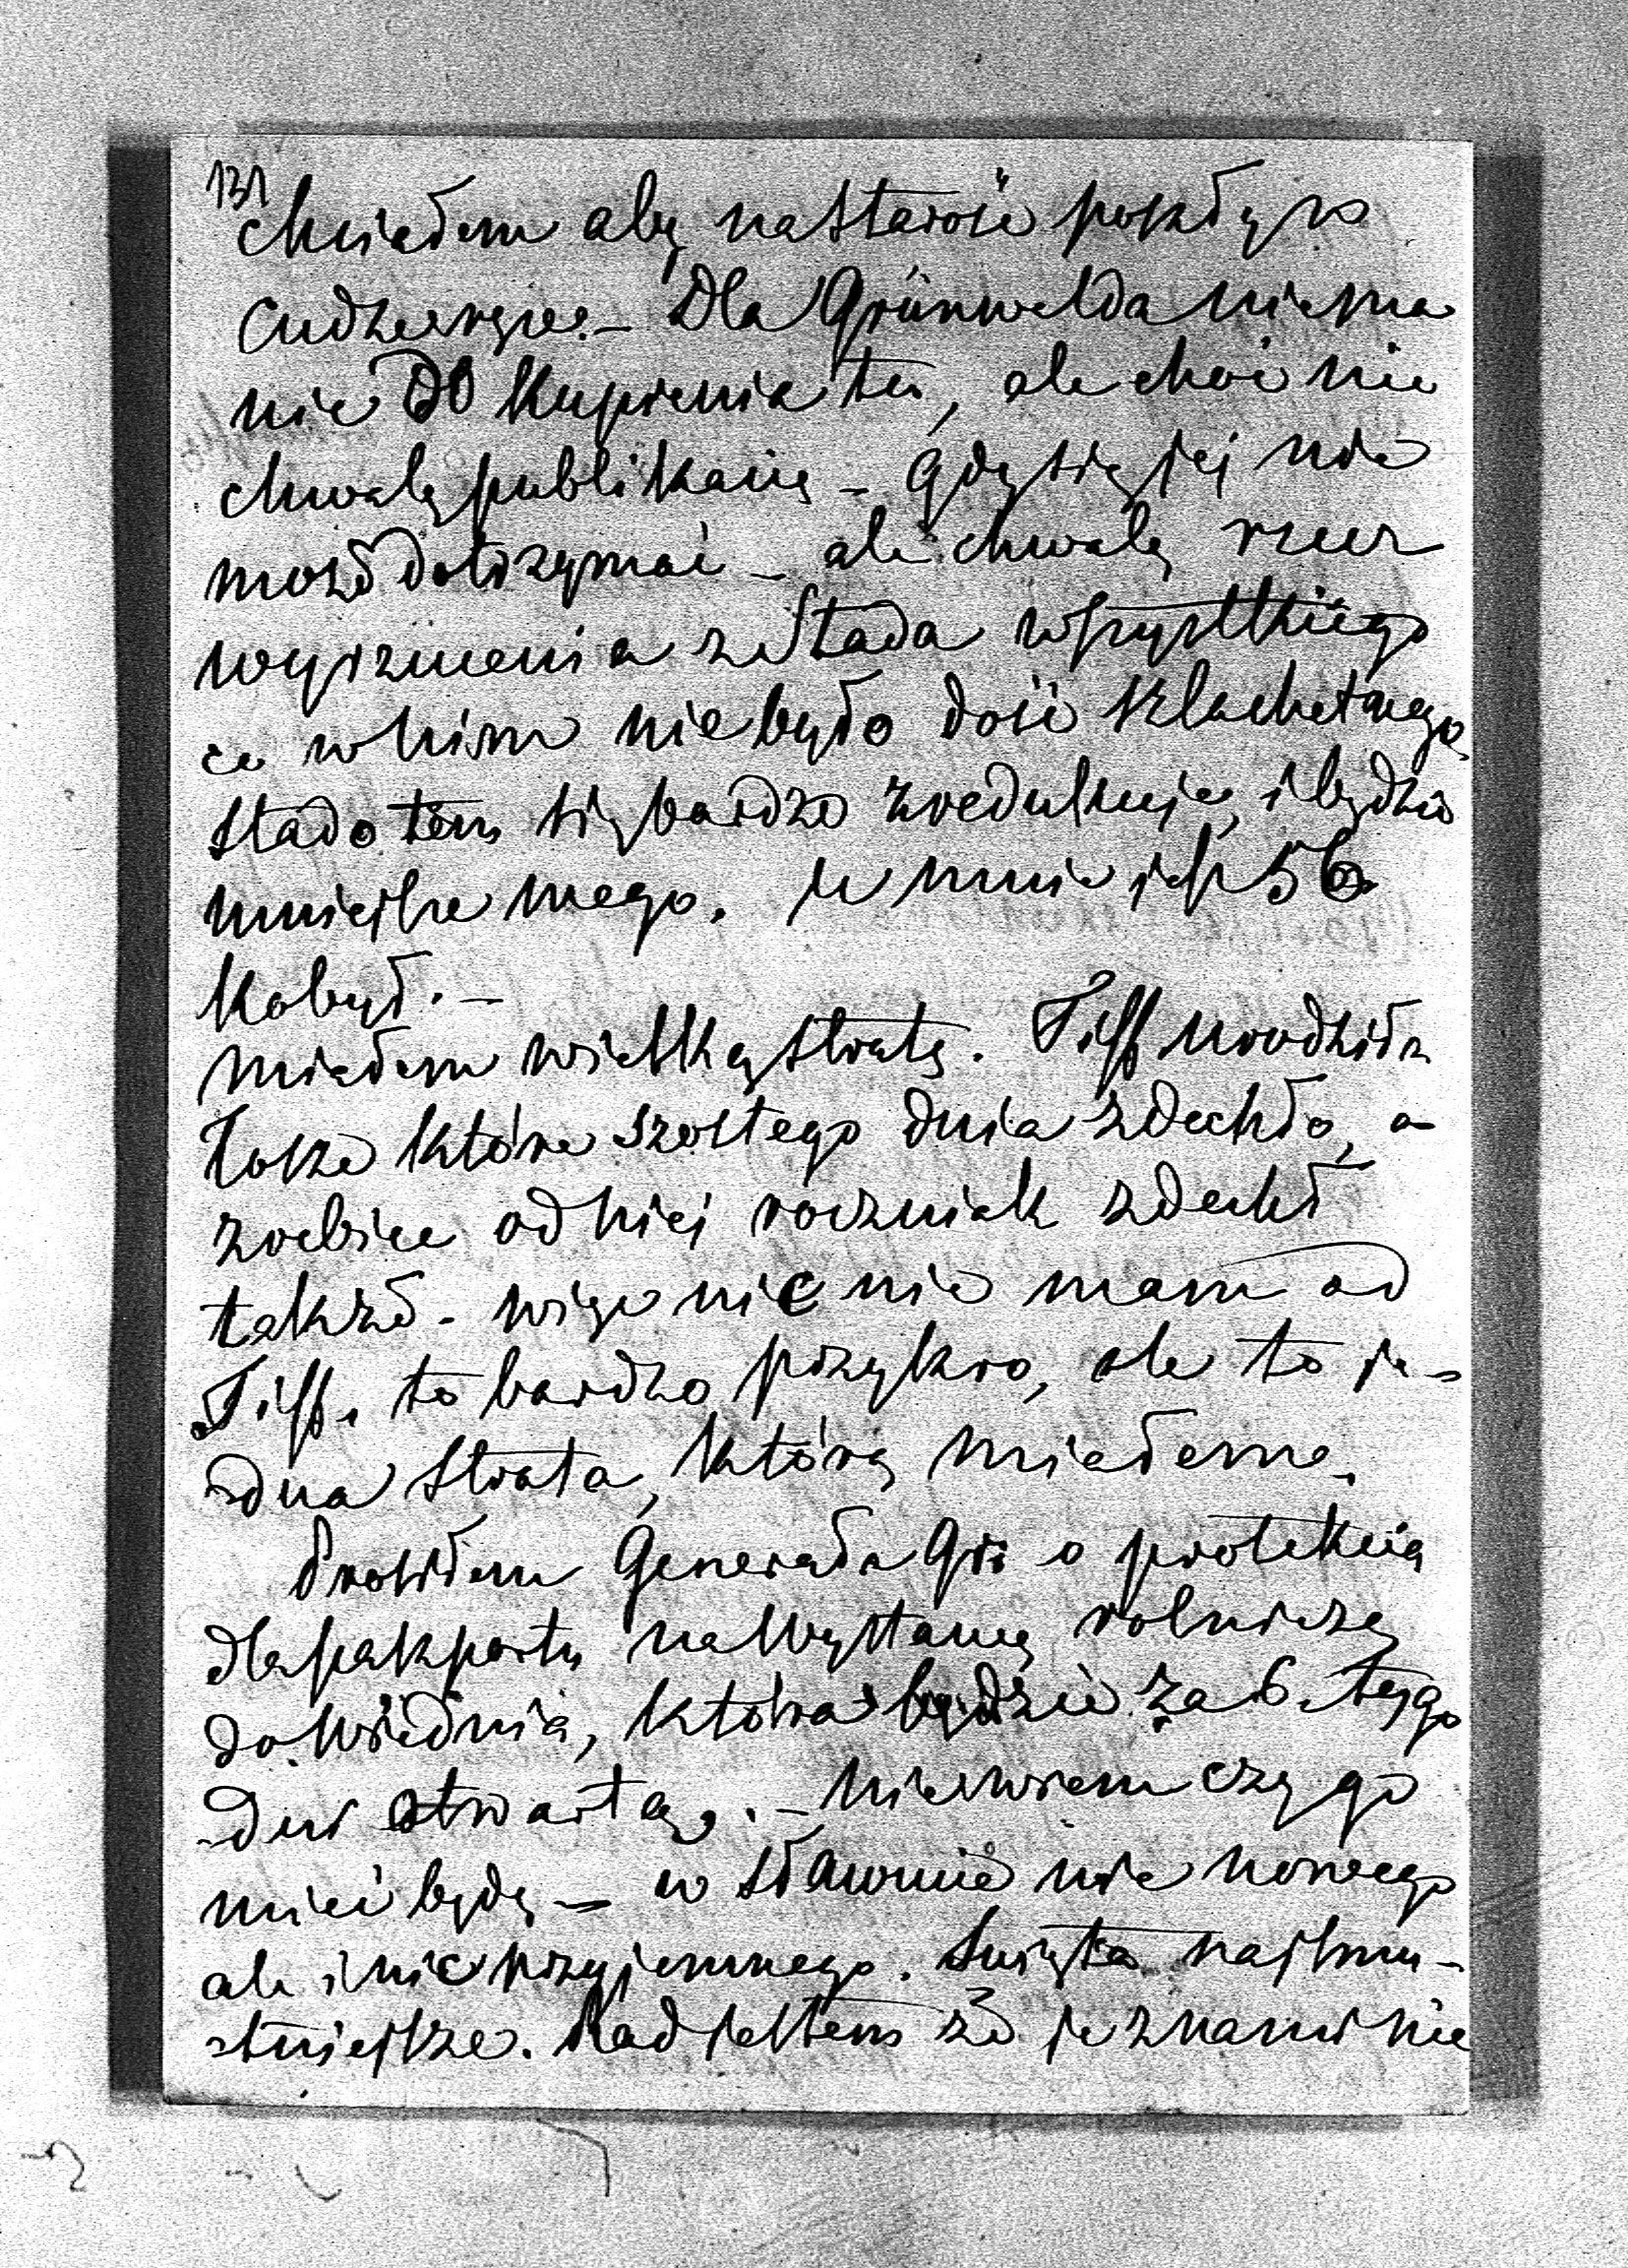 131
chciałem aby na starość poszły w
cudze ręce. – Dla Grünwalda niema
nic do kupienia tu, ale choć nie
chwalę publikacię – gdy się jej nie
może dotrzymać – ale chwalę rzecz
wyrzucenia ze Stada wszystkiego
co w nim nie było dość szlachetnego,
stado tem się bardzo zredukuje, i będzie
mniejsze mego. U mnie ich 56
kobył. –
Miałem wielką stratę. Tiff urodziła
łosze które szóstego dnia zdechło, a
źrebiec od niej roczniak zdechł
także – więc nic nie mam od
Tiff. to bardzo przykro, ale to je-
dna strata, którą miałem.
Prosiłem Generała Gri o protekcią
dla paszportu na Wystawę rolniczą
do Wiednia, która będzie za 6. tygo
dni otwartą. – nie wiem czy go
mieć będę – w Sławucie nic nowego
ale i nic przyjemnego. Święta najsmu-
tniejsze. Rad jestem że je z nami nie